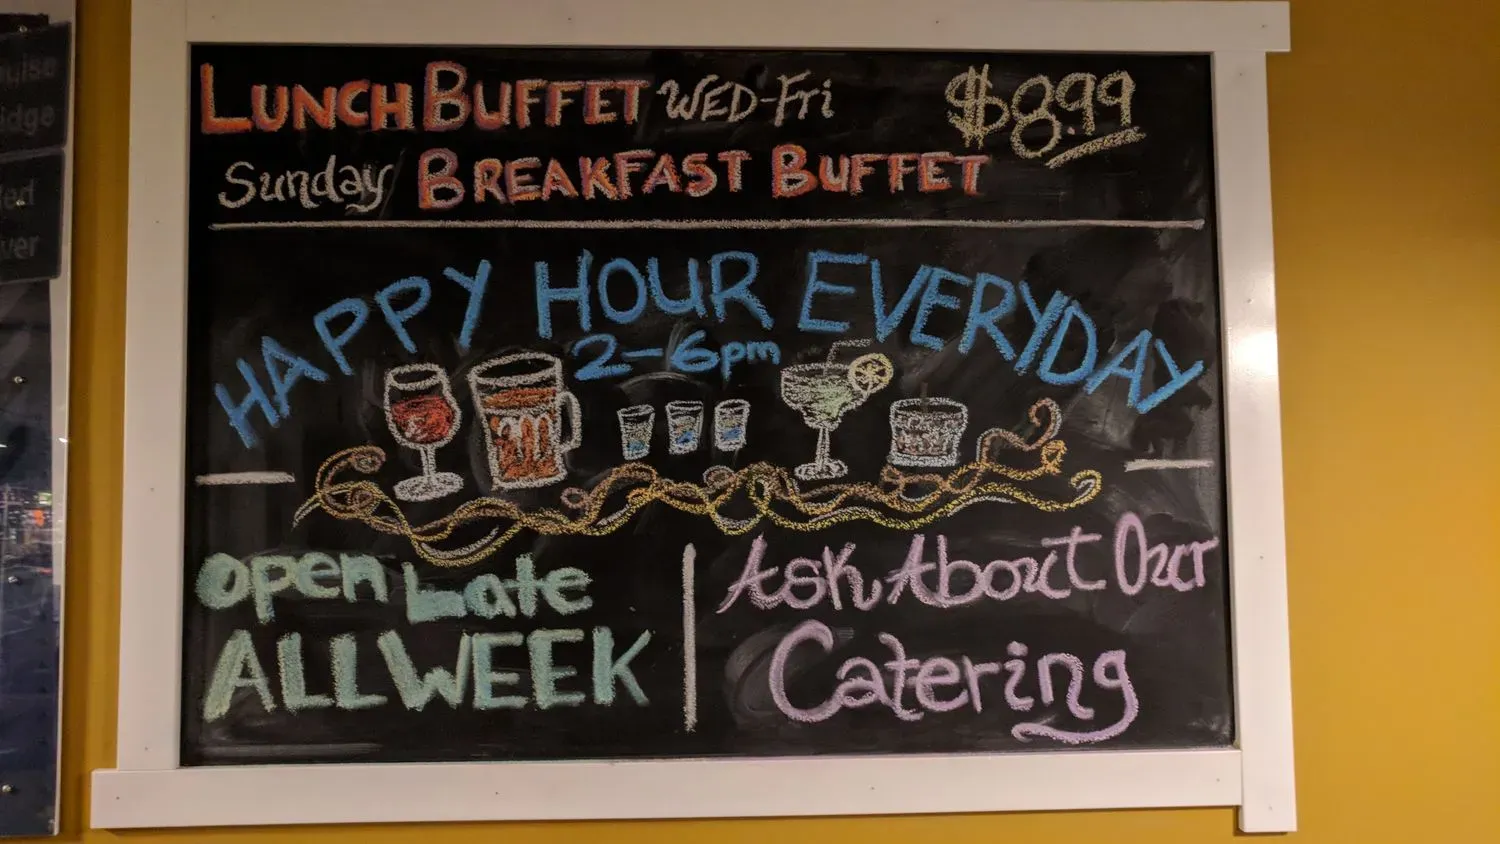 LUNCH BUFFET WED-Fri $8.99
Sunday BREAKFAST BUFFET
HAPPY HOUR EVERYDAY
2-6pm
Open Late
ALL WEEK
Ask About Our
Catering